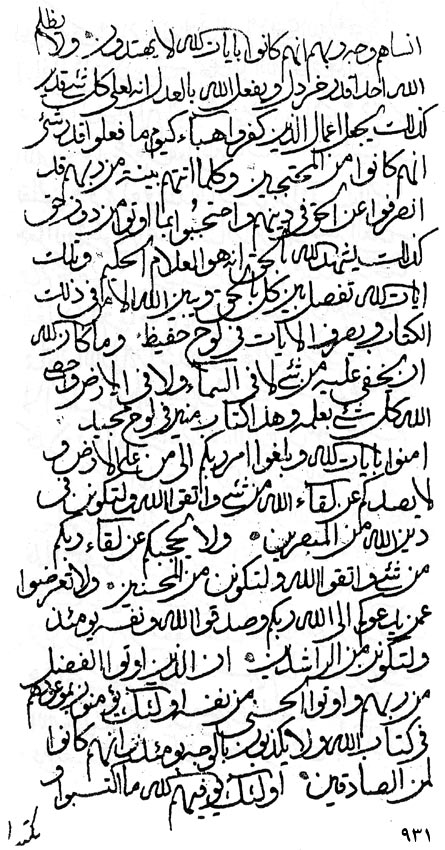 انساهم وجه ربهم انهم كانوا بايات الله لا يهتدون ولا يظلم
الله احدا قدر خردل ويفعل الله بالعدل انه لعلى كل شئ قدير
كذلك يجعل اعمال الذين كفروا هباء كيوم ما فعلوا قدر شئ
انهم كانوا من المحتجبين وكلما اتتهم بينة من ربهم قد
انصرفوا عن الحق في دينهم واحتجبوا بما اوتوا من دون حق
كذلك يشهد الله بالحق انه هو العلام الحكيم وتلك
ايات الله تفصل بين كل بالحق وبين الله الامر في ذلك
الكتاب ويصرف الايات في لوح حفيظ وما كان الله
ان يخفى عليه من شئ لا في السماء ولا في الارض واحصى
الله كل شئ بعلمه وهذا كتاب منير في لوح مجيد
امنوا بايات الله وبلغوا امر ربكم الى من على الارض و
لا يصدكم عن لقاء الله من شئ واتقوا الله ولتكونن في
دين الله من المبصرين ولا يحجبكم عن لقاء ربكم
من شئ واتقوا الله ولتكونن من المحسنين ولا تعرضوا
عمن يدعوكم الى الله ربكم وصدقوا الله ونفسه يومئذ
ولتكونن من الراشدين ان الذين اوتوا الفضل
من ربهم واوتوا الحسنى من نفسه اولئك يؤمنون بموعدهم
في كتاب الله ولا يكذبون بالوجه يومئذ انهم كانوا
لمن الصادقين اولئك يوفيهم الله ما اكتسبوا و
٩٣١